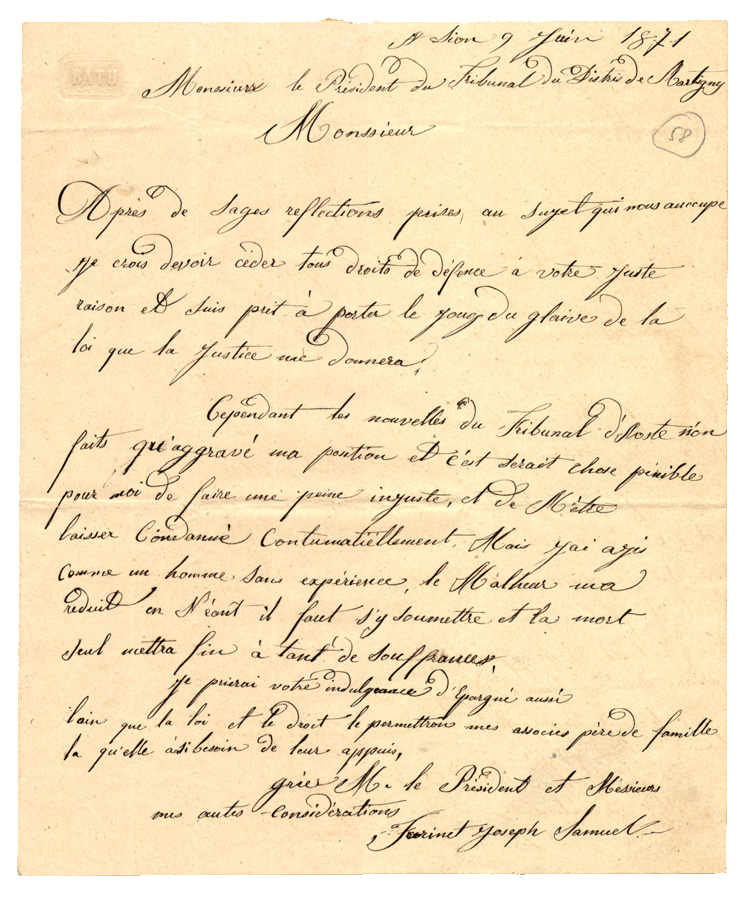 A Sion 9 Juin 1871
BATH
Monssieurs le Président du Tribunal du Distric de Martigny
Monssieur
58
Après de sages reflections prises, au sujet qui nous auccupe
je crois devoir céder tous droits de défence à votre juste
raison et suis prêt à porter le joug du glaive de la
loi que la Justice me donnera;
Cependant les nouvelles du Tribunal d'Aoste n'on
faits qu'aggravé ma position et c'est serait chose pinible
pour moi de faire une peine injuste, et de M'être
laisser Condanné Contumatiellement. Mais j'ai agis
comme un homme sans expérience, le Malheur m'a
reduit en Néant il faut s'y soumettre et la mort
seul mettra fin à tant de souffrances,
je prierai votre indulgeance d'Epargné aussi
lain que la loi et le droit le permettron mes associés père de famille
la qu'elle à si besoin de leur appuis,
gréer M. le Président et Messieurs
mes autes considérations
Farinet Joseph Samuel